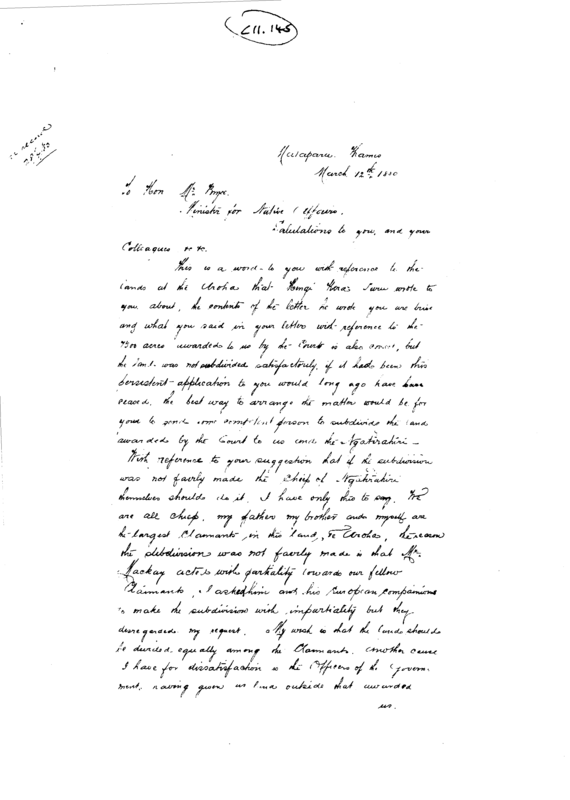 C11.145
March 12th 1880
To Hon Mr Bryce
Minister for Native Affairs.
Salutations to you, and your
Colleagues &c &c.
This is a word to you with reference to the
lands at the Aroha that Hungi wrote to
you about, the contents of the letter he wrote you are true
and what you said in your letters with reference to the
acres awarded to us by the Court is also correct, but
the land was not subdivided satisfactorily, if it had been this
persistent application to you would long ago have
ceased, the best way to arrange the matter would be for
you to send some competent person to subdivide the land
awarded by the Court to us and the Ngatirahiri
With reference to your suggestion that if the subdivision
was not fairly made the Chief of Ngatirahiri
themselves should do it, I have only this to say, We
are all chiefs, my father my brother and myself are
the largest Claimants in this land, Te Aroha, the reason
the subdivision was not fairly made is that Mr
Mackay acted with partiality towards our fellow
Claimants, I asked him and his European companions
to make the subdivision with impartiality but they
disregarded my request. My wish is that the lands should
be divided equally among the Claimants. Another cause
I have for dissatisfaction is the Officers of the Govern-
ment, having given us land outside that awarded
us.